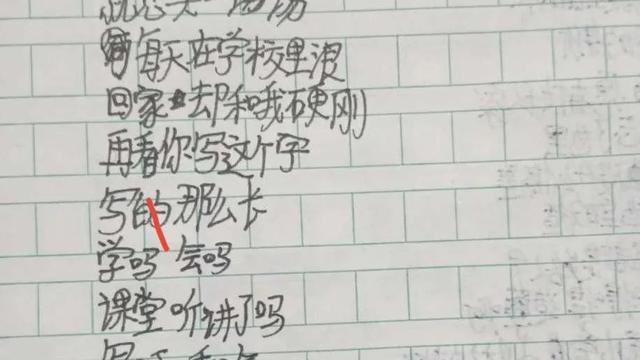 每天在学校里浪
回家却和哦硬刚
再看你写这个字
写的那么长
学吗 会吗
课堂听讲了吗